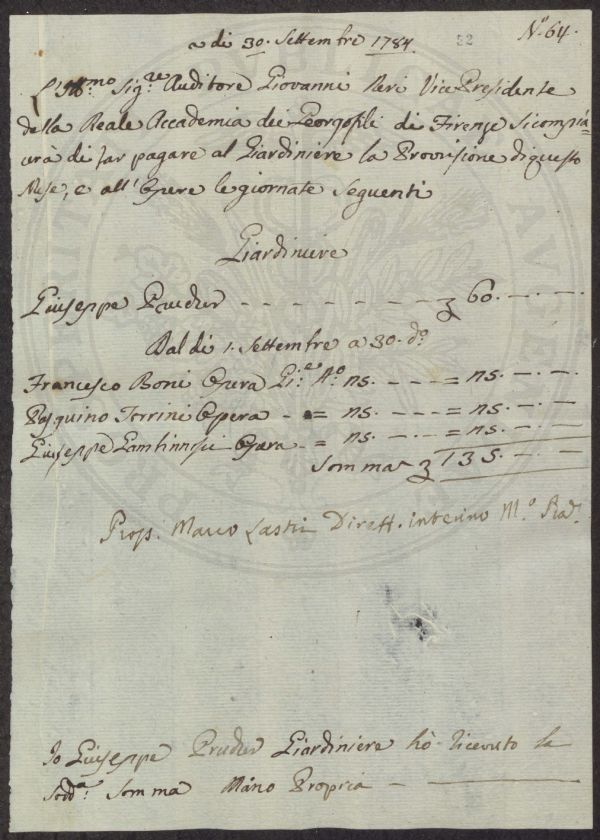 N.º 64.
a dì 30. Settembre 1784 32
L'Ill.mo Sig.re Auditore Giovanni Neri Vice Presidente
della Reale Accademia dei Georgofili di Firenze si compia=
cerà di far pagare al Giardiniere la Provisione di questo
Mese, e all'Opere le giornate seguenti
Giardiniere
Giuseppe Prucker - - - - - - - - - 60. - . -
Dal dì 1. Settembre a 30. d.º
Francesco Boni Opera Gi.e N.º 25. - . - = 25. - . -
Pasquino Torrini Opera - = 25. - . - = 25. - . -
Giuseppe Opera - = 25. - . - = 25. - . -
Somma 135. - . -
Prop. Marco Lastri Dirett. interino M.º
Io Giuseppe Prucker Giardiniere hò ricevuto la
Sodd.a Somma Mano Propria -